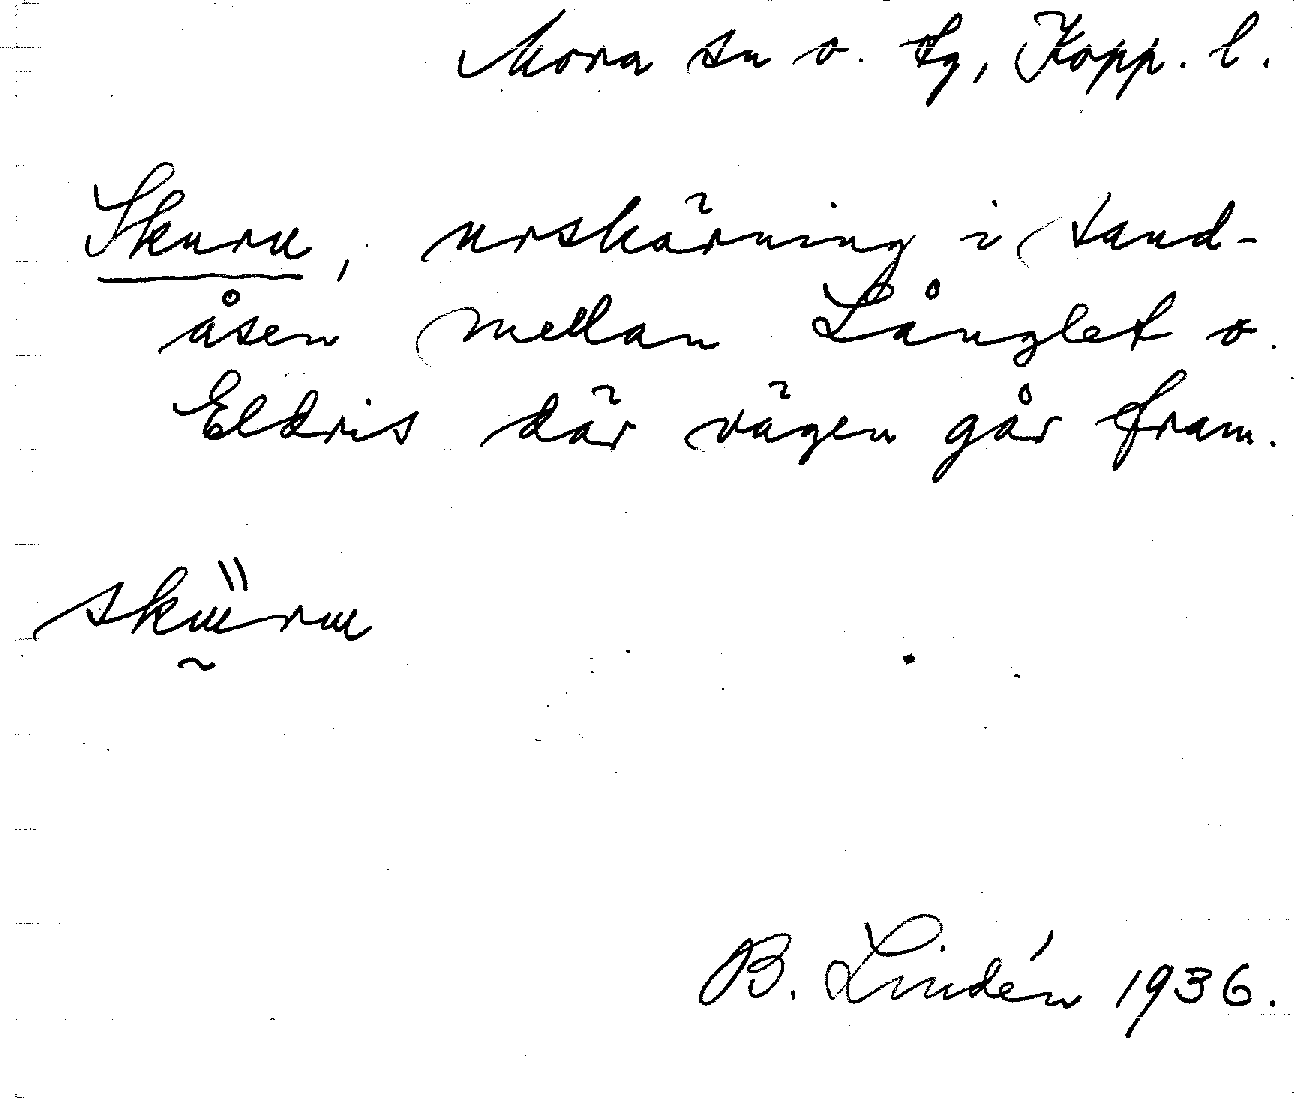 Mora sn o. tg, Kopp. l.
Skuru, urskärning i sand-
åsen mellan Långlet o.
Eldris där vägen går fram.
B. Lindén 1936.